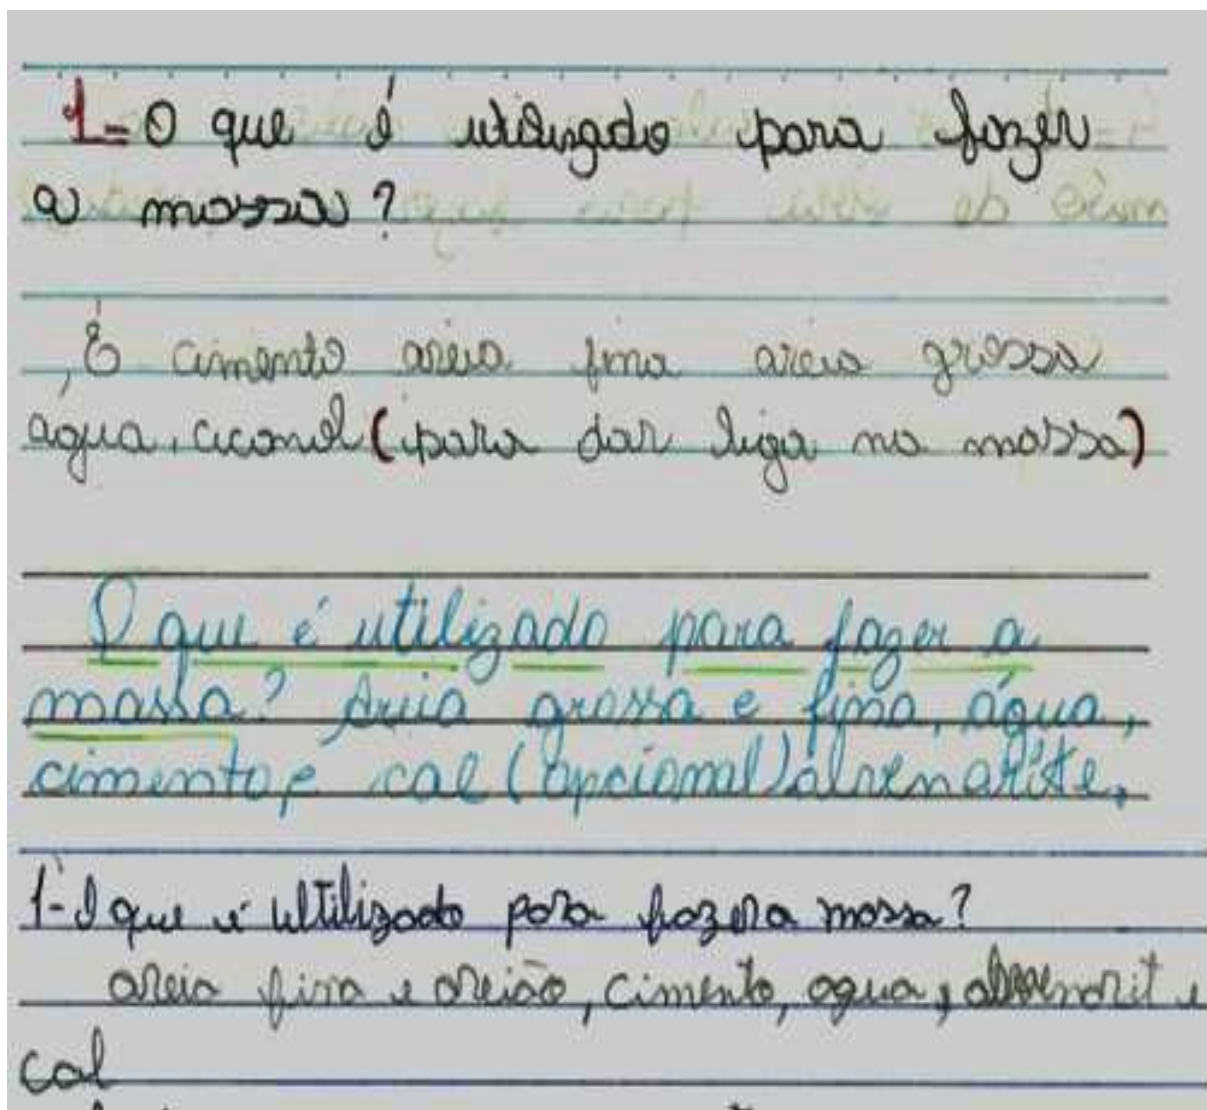 1-O que é utilizado para fazer
a massa?
É cimento areia fina areia grossa
água, ciconol (para dar liga na massa)
O que é utilizado para fazer a
massa? Areia grossa e fina, água,
cimento, e cal (opcional) alvenarite.
1-O que é ultilizado para fazer a massa?
areia fina e areião, cimento, agua, e
cal